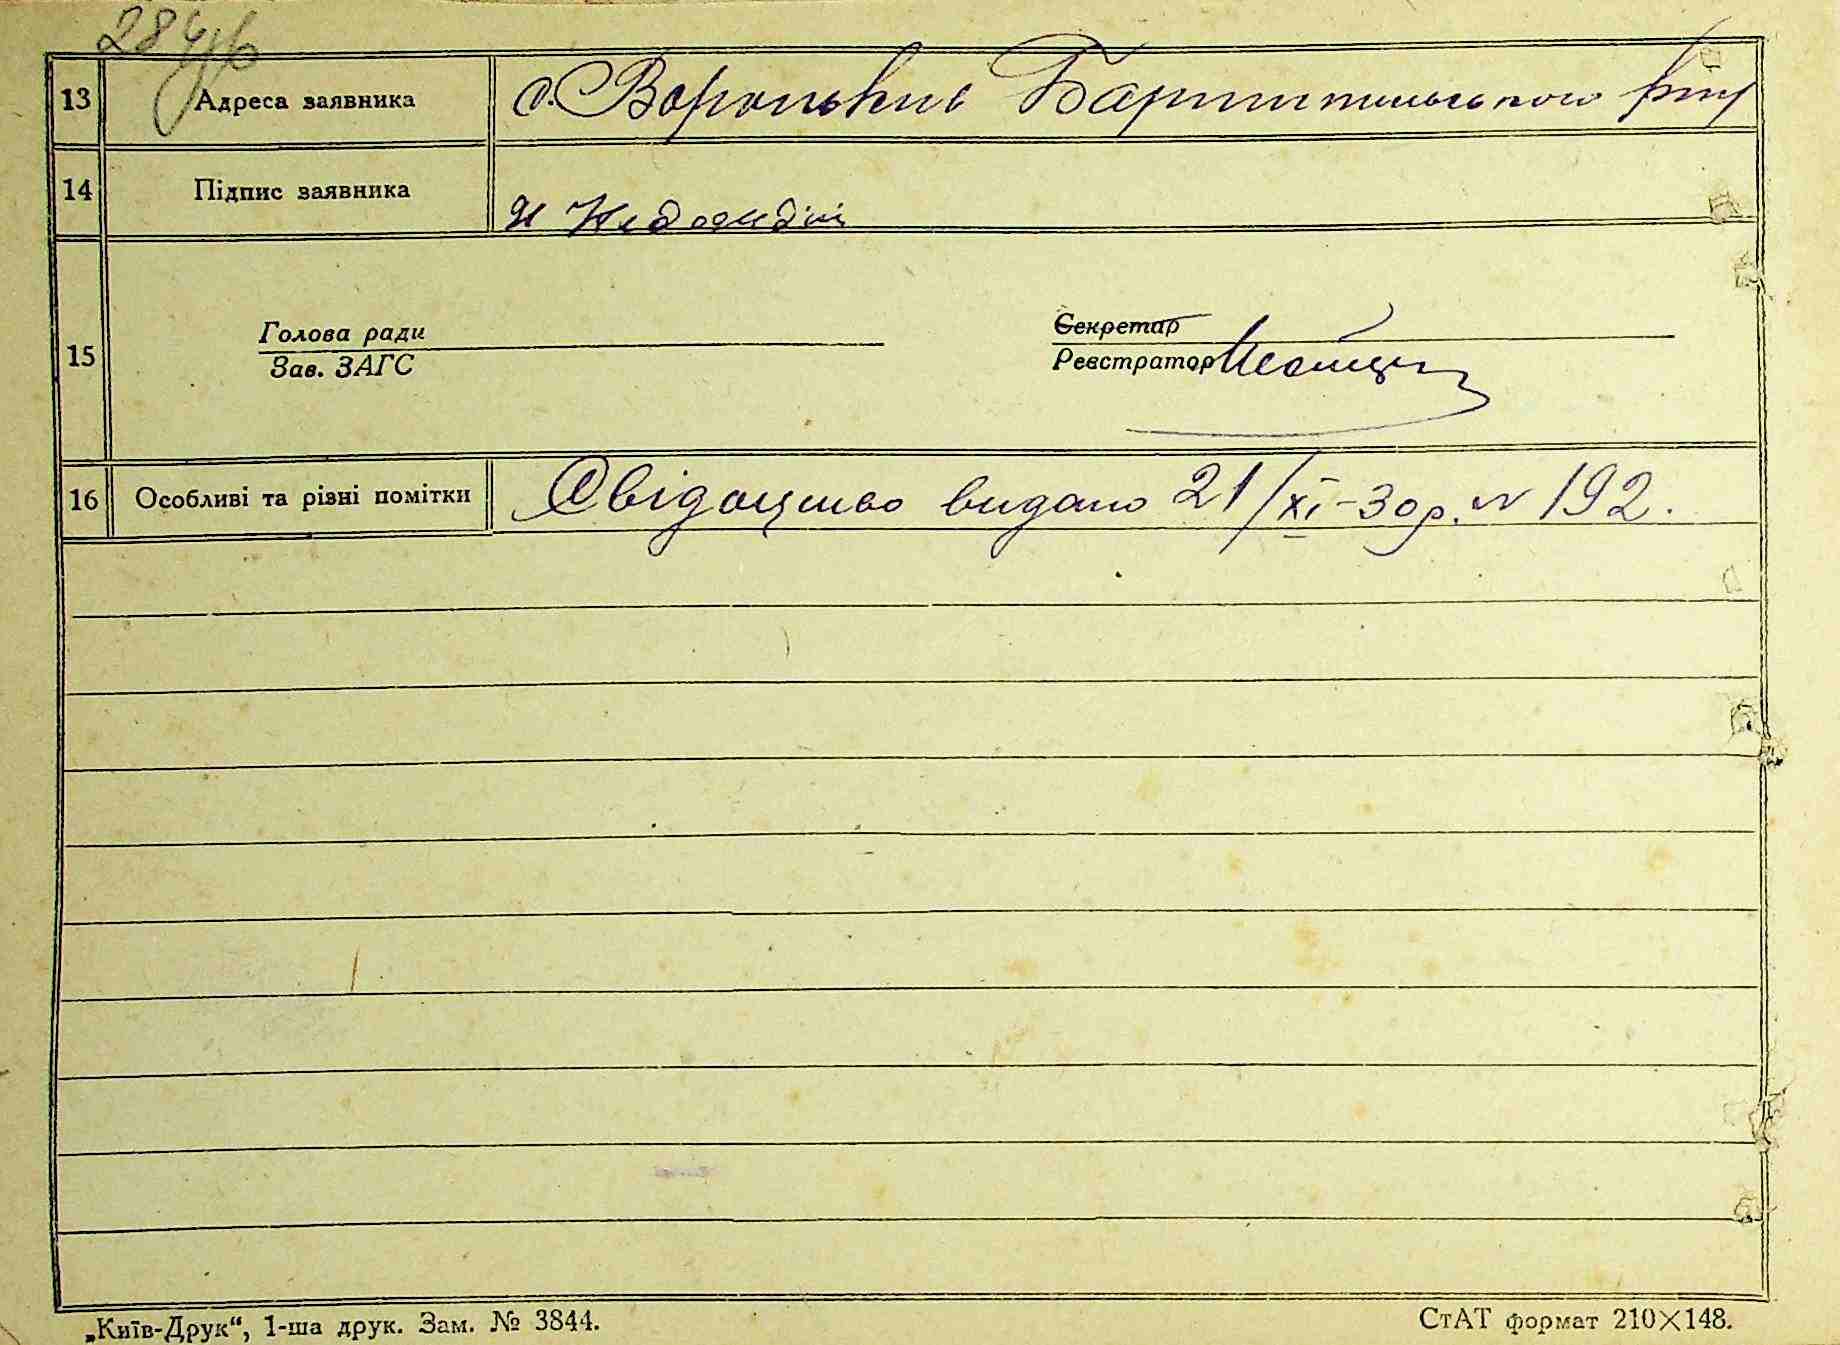 284
13 Адреса заявника с. Вороньків Баришпільського р-ну
14 Підпис заявника
Голова ради Секретар
15
Зав. ЗАГС Реєстратор
16 Особливі та різні помітки Свідоцтво видано 21/XI-30р. N 192.
„Київ-Друк“, 1-ша друк. Зам. № 3844. СтАТ формат 210×148.